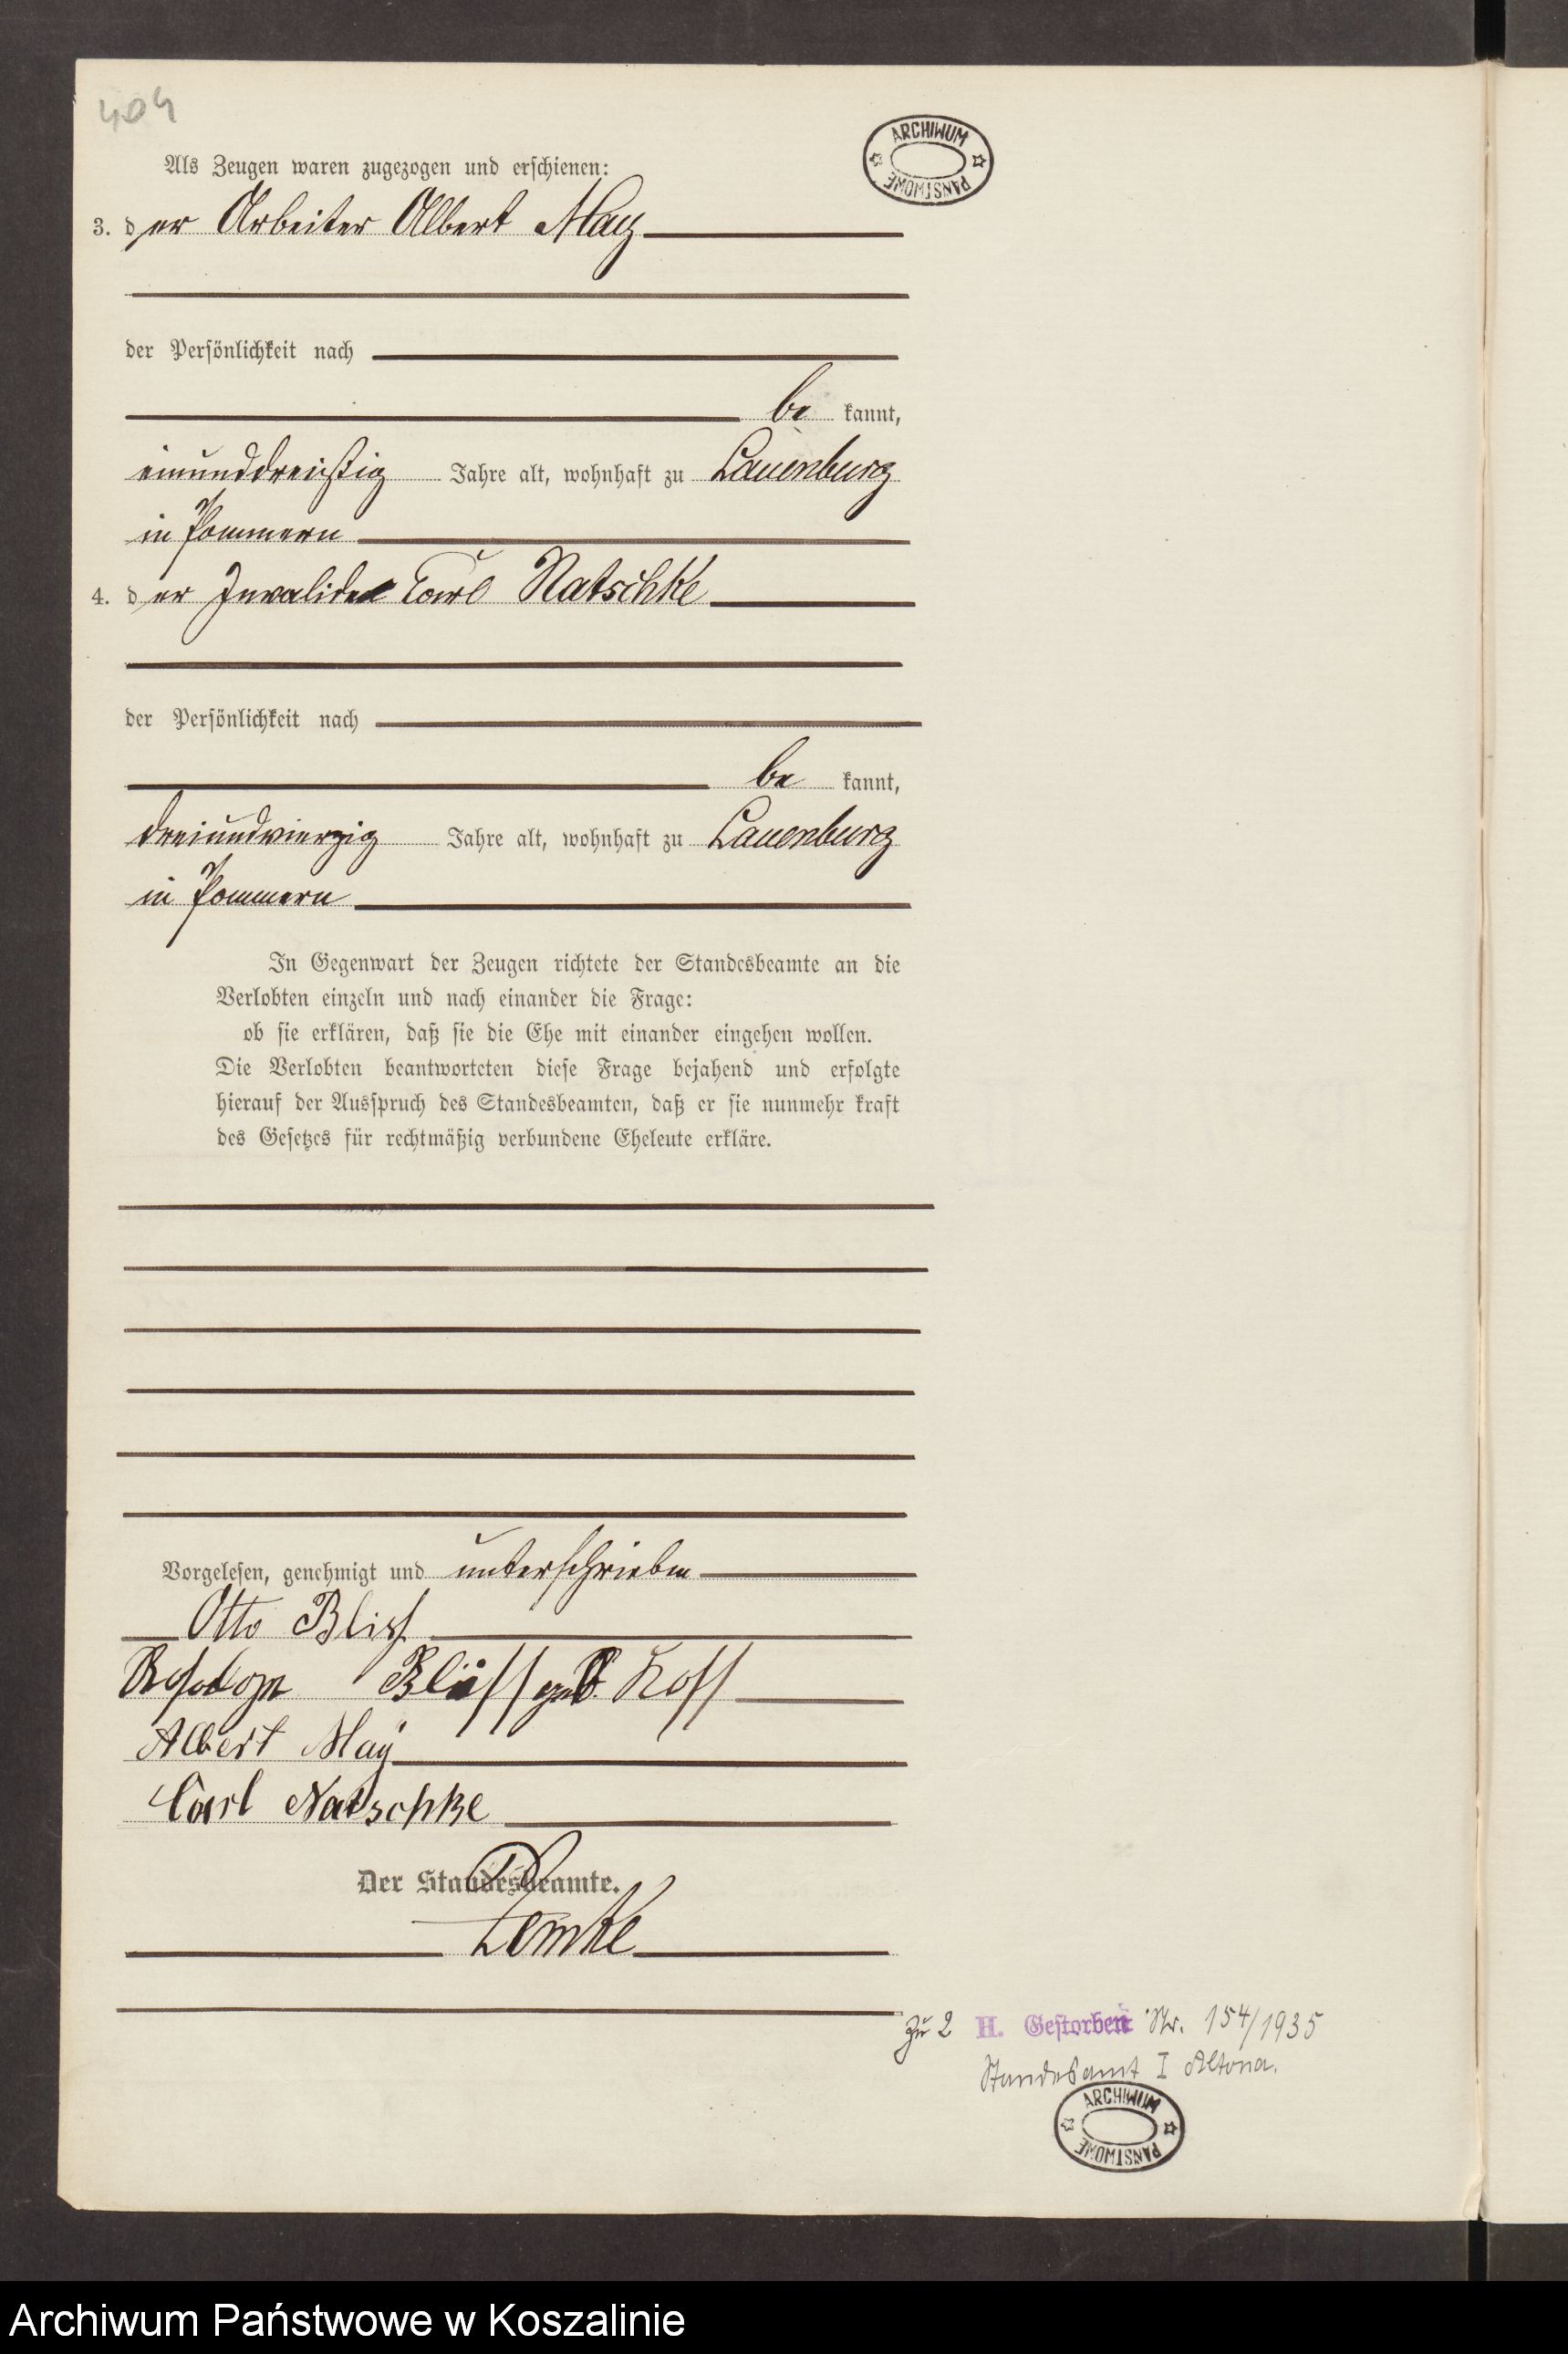 404
ARCHIWUM PAŃSTWOWE
Als Zeugen waren zugezogen und erschienen:
3. der Arbeiter Albert May
der Persönlichkeit nach
be kannt,
einunddreißig Jahre alt, wohnhaft zu Lauenburg
in Pommern
4. der Invalide Carl Natschke
der Persönlichkeit nach
be kannt,
dreiundvierzig Jahre alt, wohnhaft zu Lauenburg
in Pommern
In Gegenwart der Zeugen richtete der Standesbeamte an die
Verlobten einzeln und nach einander die Frage:
ob sie erklären, daß sie die Ehe mit einander eingehen wollen.
Die Verlobten beantworteten diese Frage bejahend und erfolgte
hierauf der Ausspruch des Standesbeamten, daß er sie nunmehr kraft
des Gesetzes für rechtmäßig verbundene Eheleute erkläre.
Vorgelesen, genehmigt und unterschrieben
Otto
geb. Koss
Albert May
Carl Natschke
Der Standesbeamte.
Lemke
Zu 2 H. Gestorben Nr. 154/1935
Standesamt I Altona.
ARCHIWUM PAŃSTWOWE
Archiwum Państwowe w Koszalinie